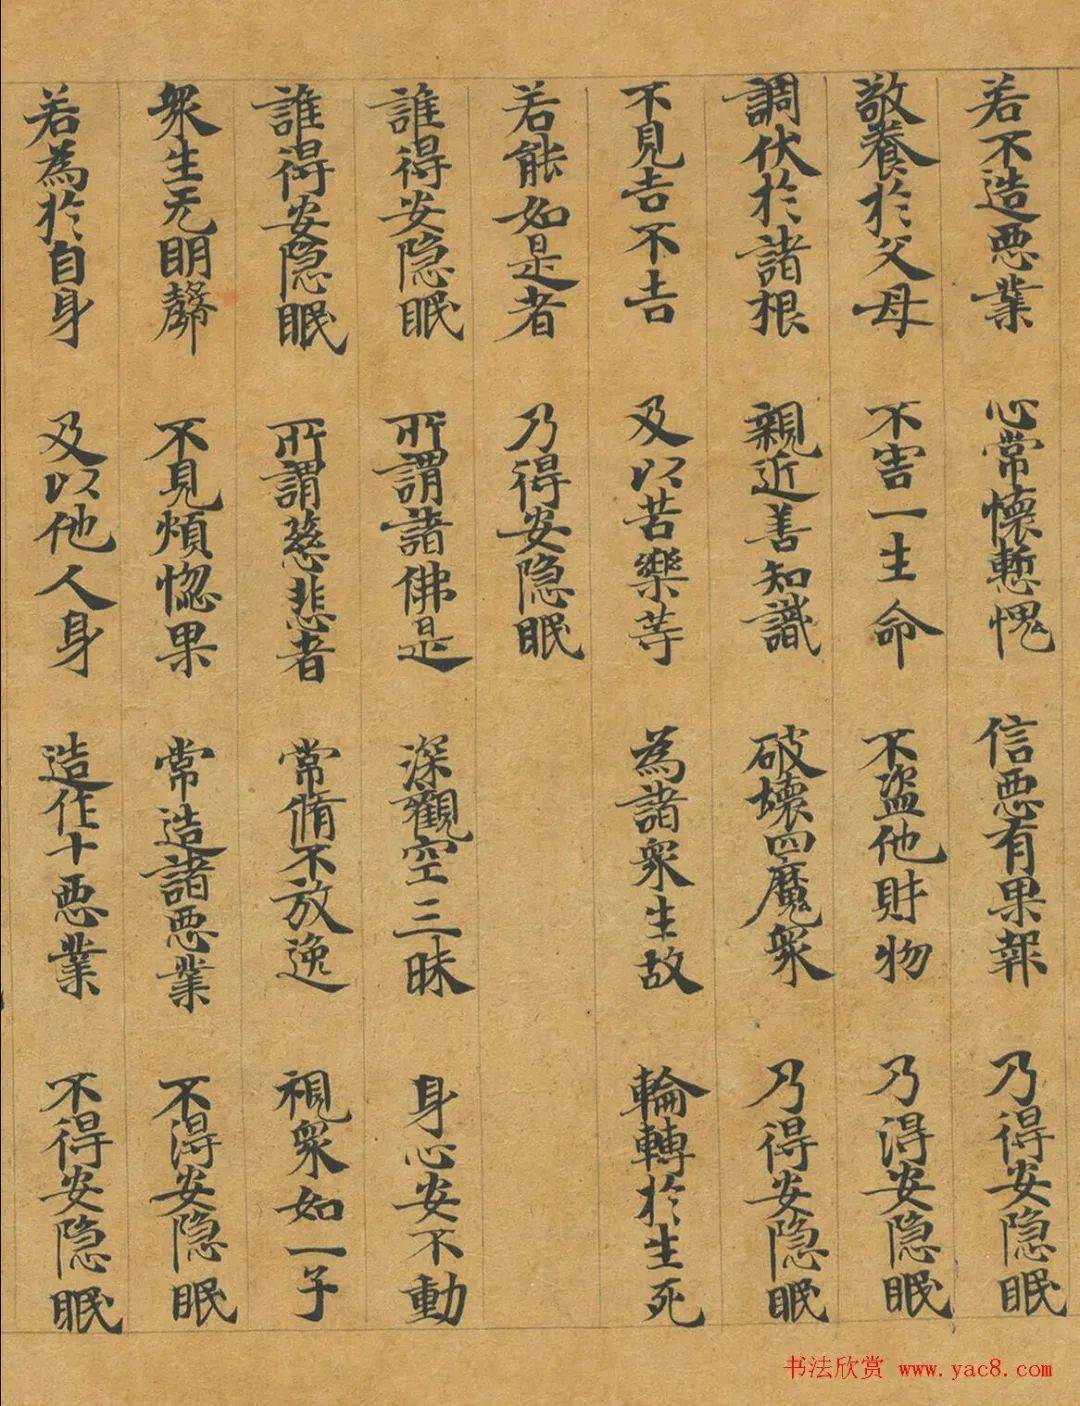 若不造惡業 心常懷慙愧 信惡有果報 乃得安隐眠
敬養於父母 不害一生命 不盜他財物 乃得安隐眠
調伏於諸根 親近善知識 破壞四魔衆 乃得安隐眠
不見吉不吉 及以苦樂等 為諸衆生故 輪轉於生死
若能如是者 乃得安隐眠
誰得安隐眠 所謂諸佛是 深觀空三昧 身心安不動
誰得安隐眠 所謂慈悲者 常脩不放逸 視衆如一子
衆生无明 不見煩惚果 常造諸惡業 不得安隐眠
若為於自身 及以他人身 造作十惡業 不得安隐眠
书法欣赏 www.yac8.com